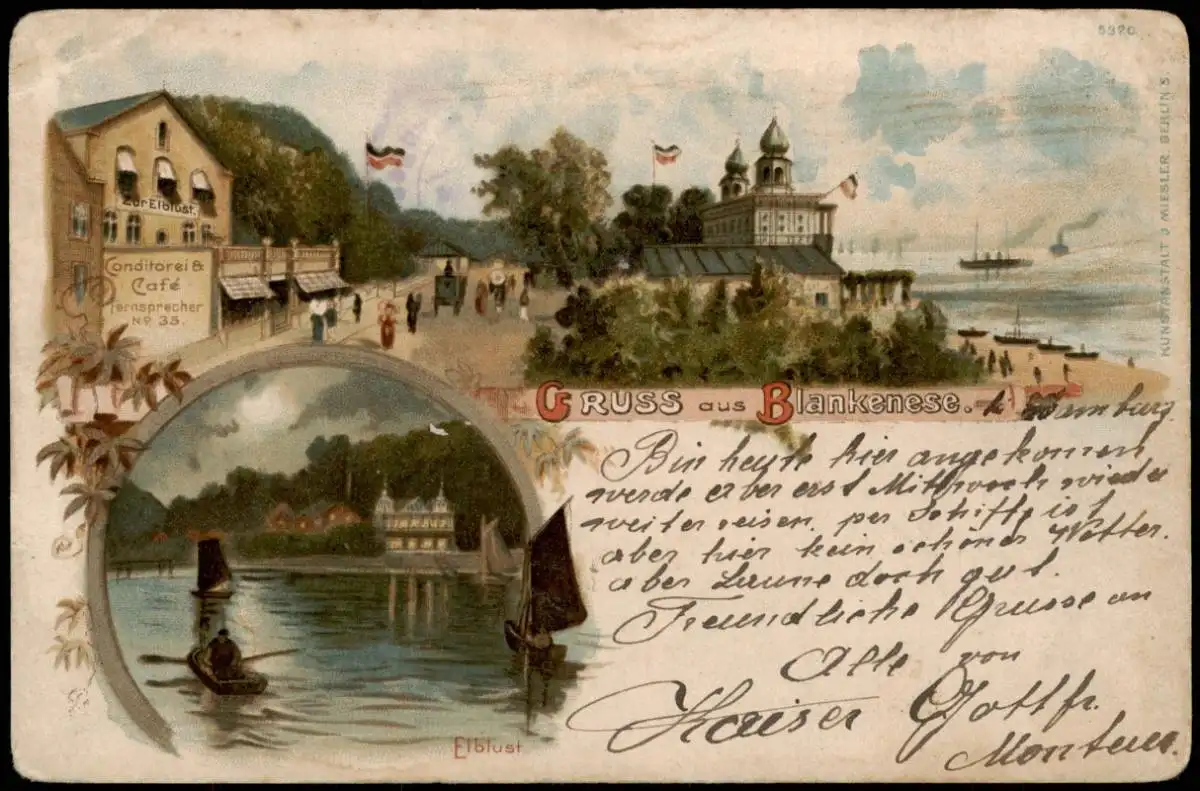 5320
KUNSTANSTALT J MIESLER, BERLIN S.
Zur Elblust.
Conditorei &
Café
Fernsprecher
No 35.
GRUSS aus Blankenese.
Hamburg
Bin heute hier angekomen
werde erber erst Mittwoch wieder
weiter reisen. per Schiff, ist
aber hier kein schönes Wetter.
aber Laune doch gut.
Freundliche Grusse an
Alle von
Kaiser Gottfr.
Elblust